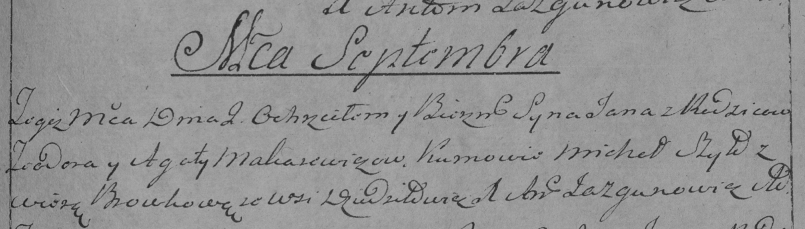 X Antoni Łazgunowicz
Mca Septembra
Tegoż Mca Dnia 2. Ochrzciłem y Bierzm Syna Jana z Rodzicow
Teodora y Agaty Makarewiczow. Kumowie Michał Szyło z
Browkową ze wsi Dziedziłowicz X Ant Łazgunowicz